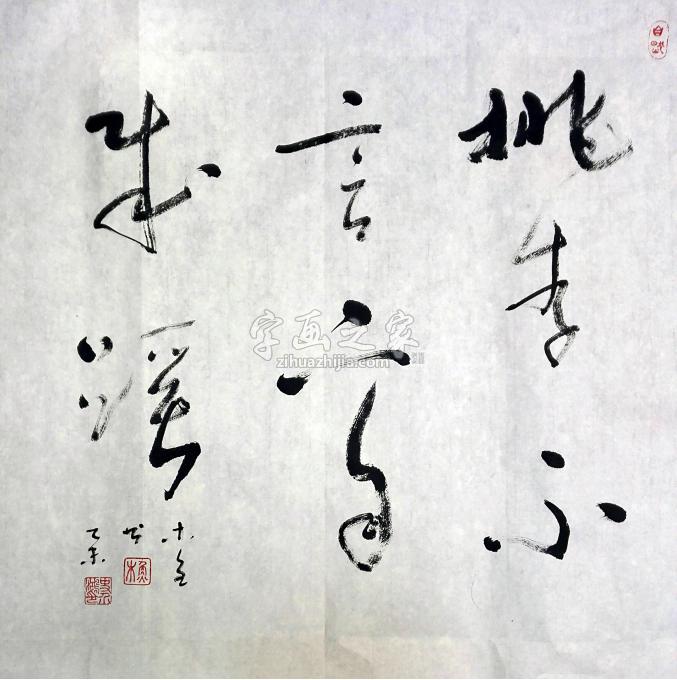 桃李不
言下自
成蹊
书
乙未
字画之家
zihuazhijia.com